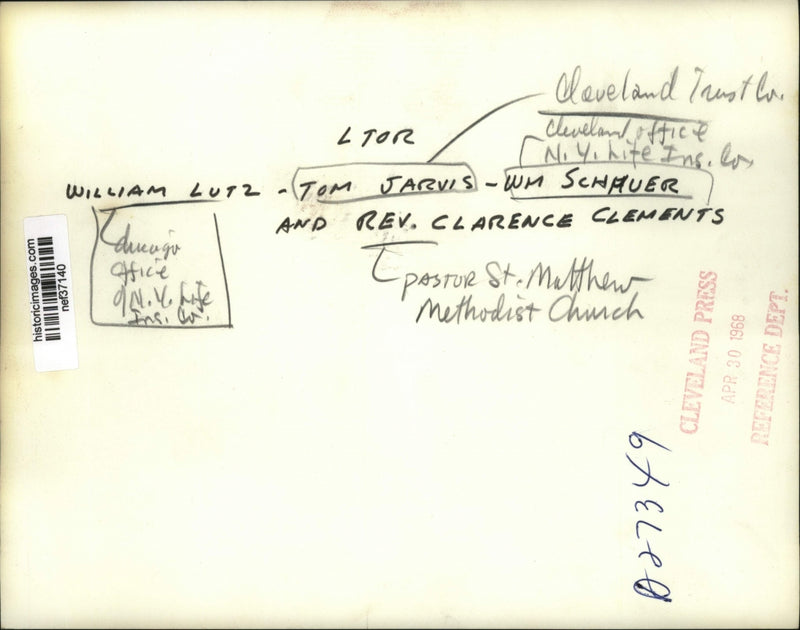 Cleveland Trust Co.
L TO R
Cleveland office
N.Y. Life Ins. Co.
WILLIAM LUTZ - TOM JARVIS - WM SCHAUER
AND REV. CLARENCE CLEMENTS
Chicago
office
of N.Y. Life
Ins. Co.
PASTOR St. Matthew
Methodist Church
historicimages.com
nef37140
CLEVELAND PRESS
APR 30 1968
REFERENCE DEPT.